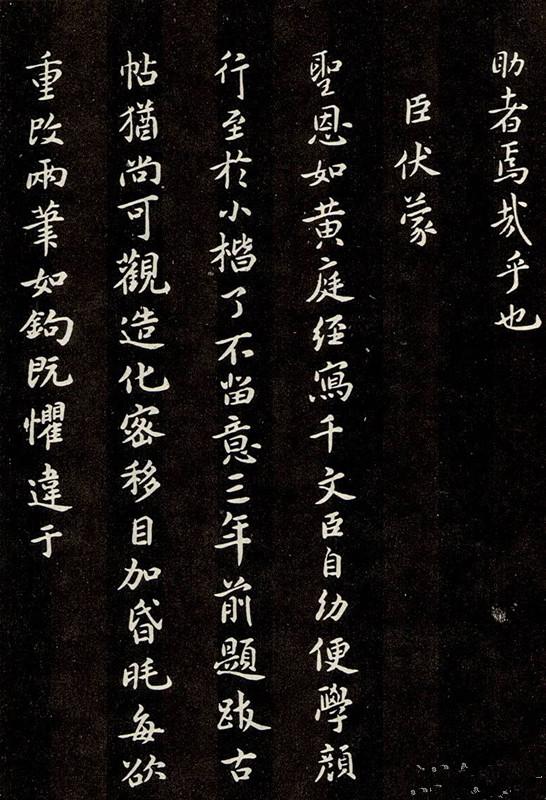 助者焉哉乎也
臣伏蒙
聖恩如黄庭經寫千文臣自幼便學顔
行至於小楷了不留意三年前題跋古
帖猶尚可觀造化密移目加昏眊每欲
重改兩筆如鉤既懼違于